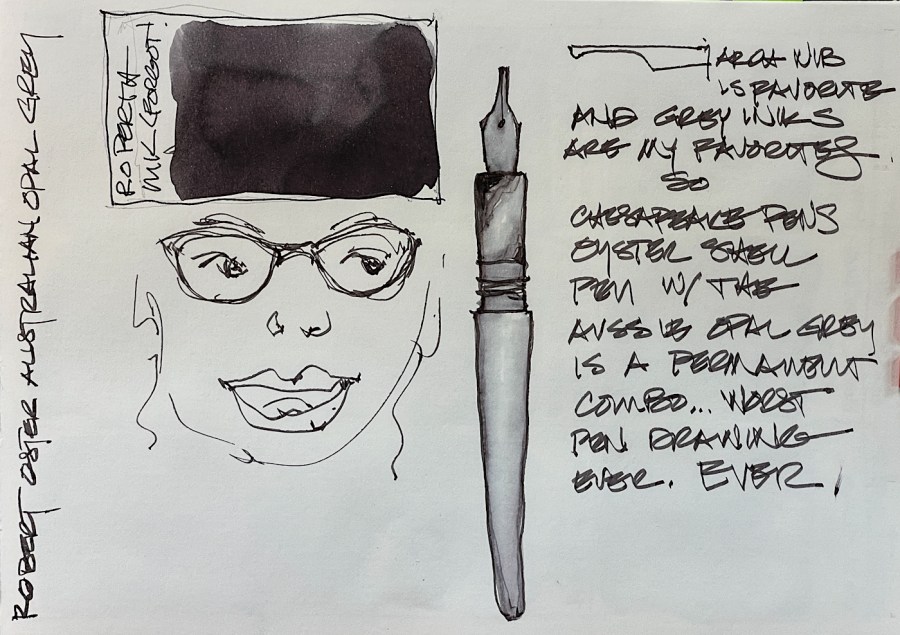 ROBERT OSTER AUSTRALIAN OPAL GREY
RO PERTH
INK FORGOT!
ARCH NIB
IS FAVORITE
AND GREY INKS
ARE MY FAVORITES.
SO
CHESAPEAKE PENS
OYSTER SHELL
PEN W/ THE
AUSSIE OPAL GREY
IS A PERMANENT
COMBO... WORST
PEN DRAWING
EVER. EVER.